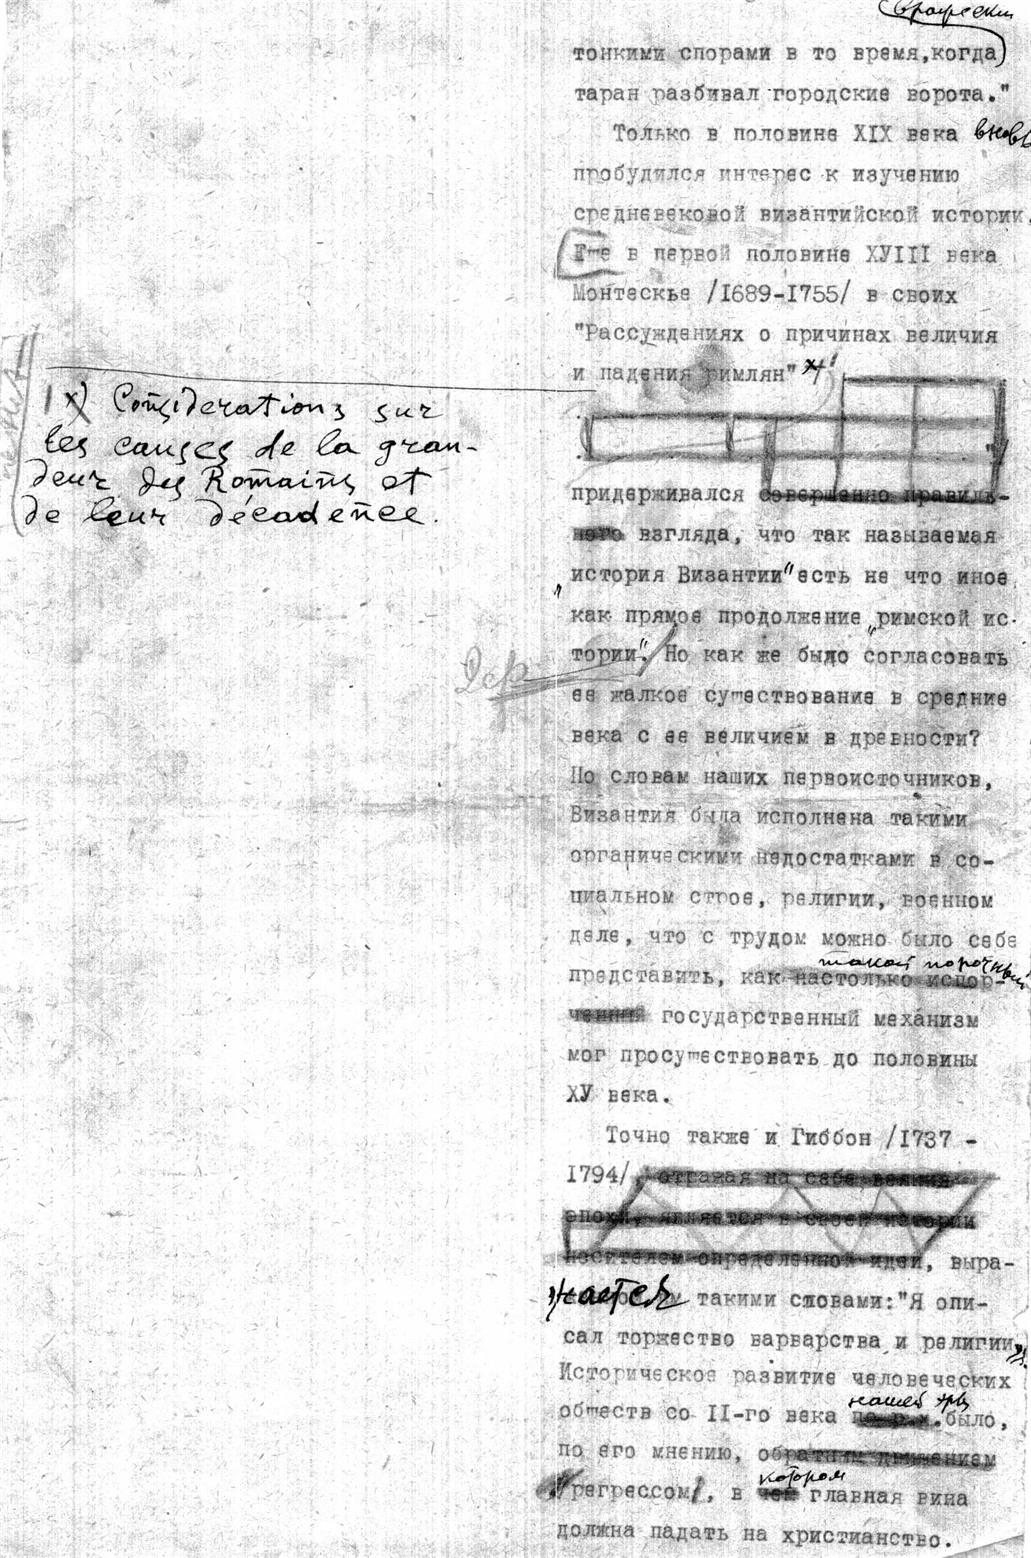 тонкими спорами в то время, когда
таран разбивал городские ворота."
Только в половине XIX века вновь
пробудился интерес к изучению
средневековой византийской истории.
Еще в первой половине ХУIII века
Монтескье /1689-1755/ в своих
"Рассуждениях о причинах величия
и падения римлян" x)
1 x) Considerations sur
les causes de la gran-
deur des Romains et
de leur décadence.
придерживался совершенно правиль-
ного взгляда, что так называемая
"история Византии" есть не что иное
как прямое продолжение "римской ис-
тории". Но как же было согласовать
ее жалкое существование в средние
века с ее величием в древности?
По словам наших первоисточников,
Византия была исполнена такими
органическими недостатками в со-
циальном строе, религии, военном
деле, что с трудом можно было себе
такой порочный
представить, как настолько испор-
ченный государственный механизм
мог просуществовать до половины
ХУ века.
Точно также и Гиббон /1737 -
1794/, отражая на себе веяния
эпохи, является в своей истории
носителем определенной идеи, выра-
жается такими словами: "Я опи-
сал торжество варварства и религии".
Историческое развитие человеческих
нашей эры
обществ со II-го века по р.х. было,
по его мнению, обратным движением
котором
/регрессом/, в чем главная вина
должна падать на христианство.